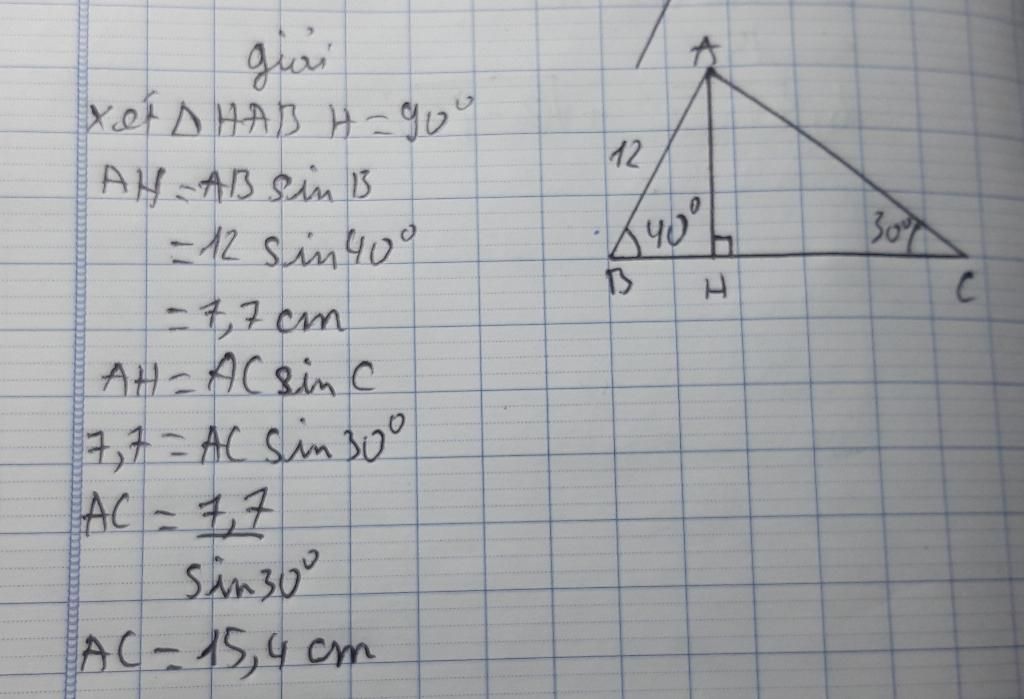 giải
xét Δ HAB H = 90°
AH = AB sin B
= 12 sin 40°
= 7,7 cm
AH = AC sin C
7,7 = AC sin 30°
AC = 7,7
sin 30°
AC = 15,4 cm
A
12
40°
30°
B
H
C